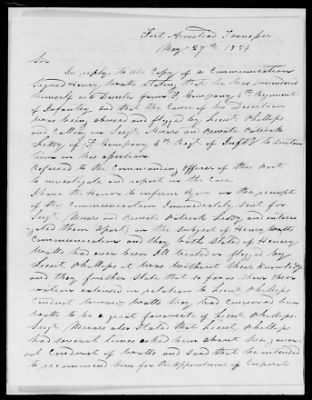 Fort Armistead Tennessee
May 27th 1834
Sir
In reply to the Copy of a Communication
Signed Henry Watts Stating that he has surrendered
himself as a Deserter from F Company 4th Regiment
of Infantry, and that the Cause of his Desertion
was being abused and flogged by Lieut Phillips
and Calling on Sergt Meares and Private Patrick
Leddy of F Company 4th Regt. of Inft'y to sustain
him in his assertion
Referred to the Commanding Officer of this Post
to investigate and report in the Case
I have the Honor to inform you on the receipt
of this Communication Immediately sent for
Sergt. Meares and Private Patrick Leddy and interro-
gated them apart, on the subject of Henry Watts
Communication and they both State if Henry
Watts had ever been Ill treated or flogged by
Lieut Phillips it was without their knowledge
and they further state that so far as their obser-
vation extended in relation to Lieut Phillips
Conduct towards Watts they had conceived him
Watts to be a great favourite of Lieut Phillips.
Sergt Meares also Stated that Lieut Phillips
had several times asked him about the gener-
al Conduct of Watts and said that he intended
to recommend him for the appointment of Corporal